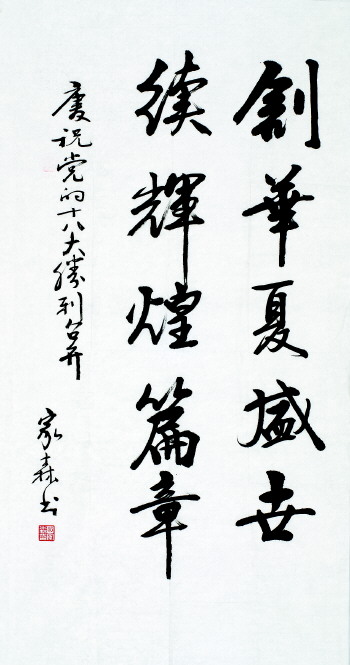 創華夏盛世
續輝煌篇章
慶祝党的十八大勝利召开
家森书